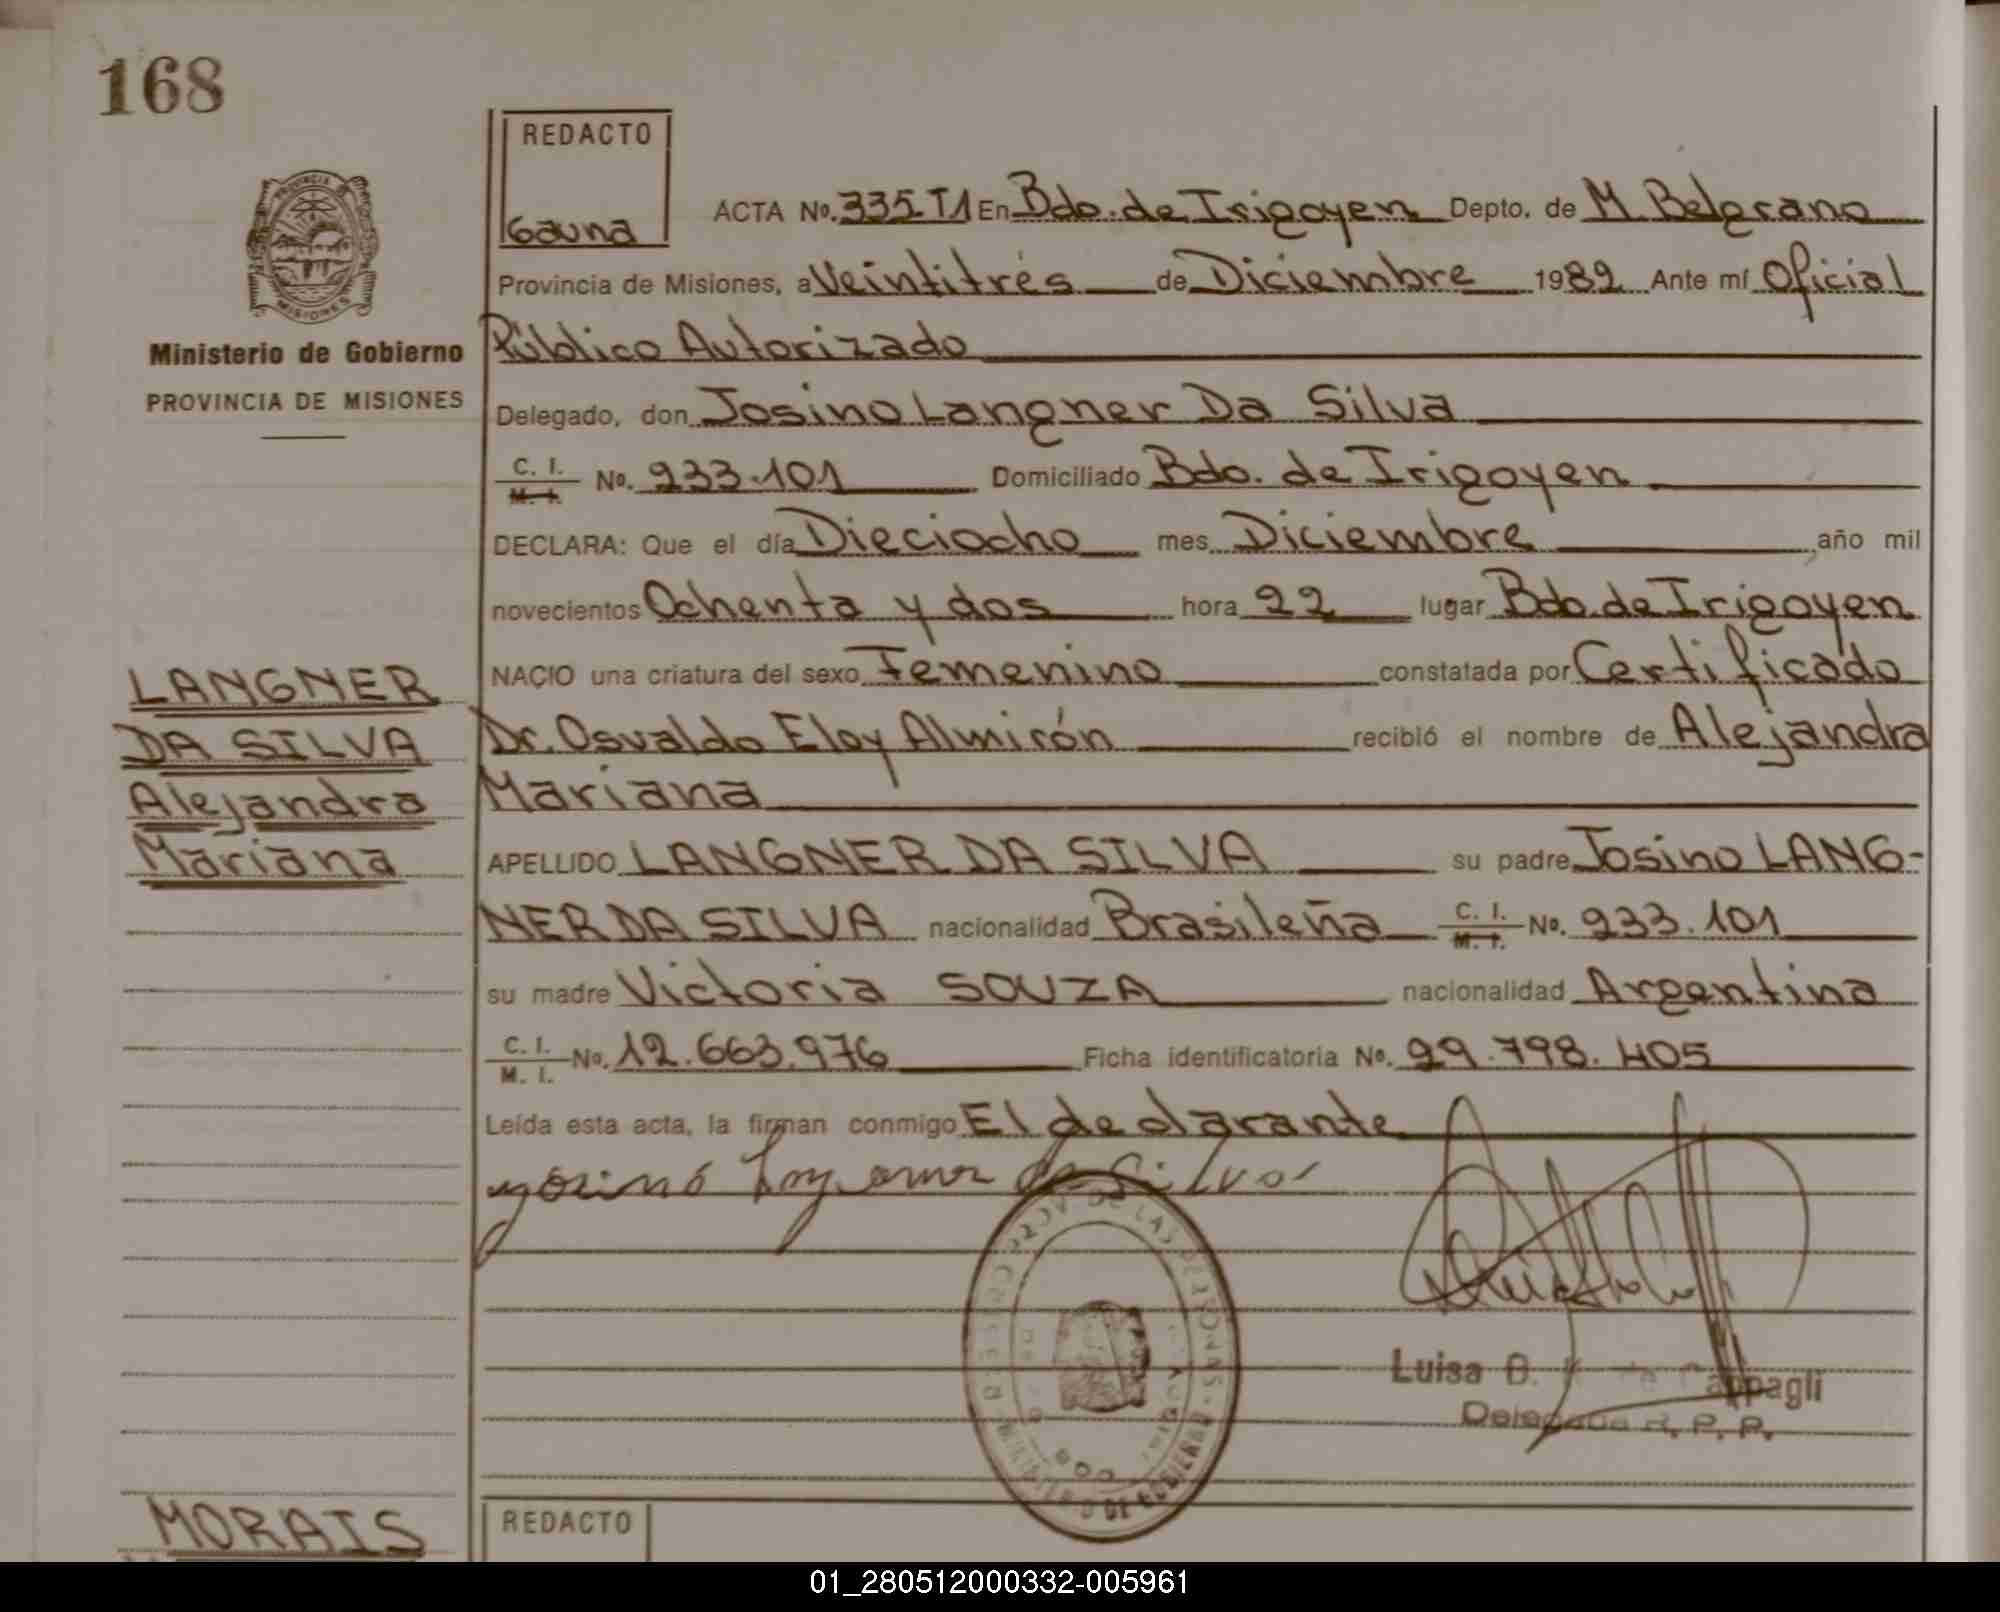 168
REDACTO
Gauna
ACTA No. 335 T1 En Bdo. de Irigoyen Depto. de M. Belgrano
Provincia de Misiones, a Veintitrés de Diciembre 1982 Ante mí Oficial
Ministerio de Gobierno
PROVINCIA DE MISIONES
Público Autorizado
Delegado, don Josino Langner Da Silva
C. I. M. I. No. 233.101 Domiciliado Bdo. de Irigoyen
DECLARA: Que el día Dieciocho mes Diciembre, año mil
novecientos Ochenta y dos hora 22 lugar Bdo. de Irigoyen
NACIO una criatura del sexo Femenino constatada por Certificado
Dr. Osvaldo Eloy Almirón recibló el nombre de Alejandra
Mariana
LANGNER
DA SILVA
Alejandra
Mariana
APELLIDO LANGNER DA SILVA su padre Josino LANG-
NER DA SILVA nacionalidad Brasileña C. I. M. I. No. 233.101
su madre Victoria SOUZA nacionalidad Argentina
C. I. M. I. No. 12.663.976 Ficha identificatoria No. 29.798.405
Leída esta acta, la firman conmigo El declarante
da Silva
Luisa D. de Cappagli
Delegada R. P. P.
MORAIS
REDACTO
01_280512000332-005961